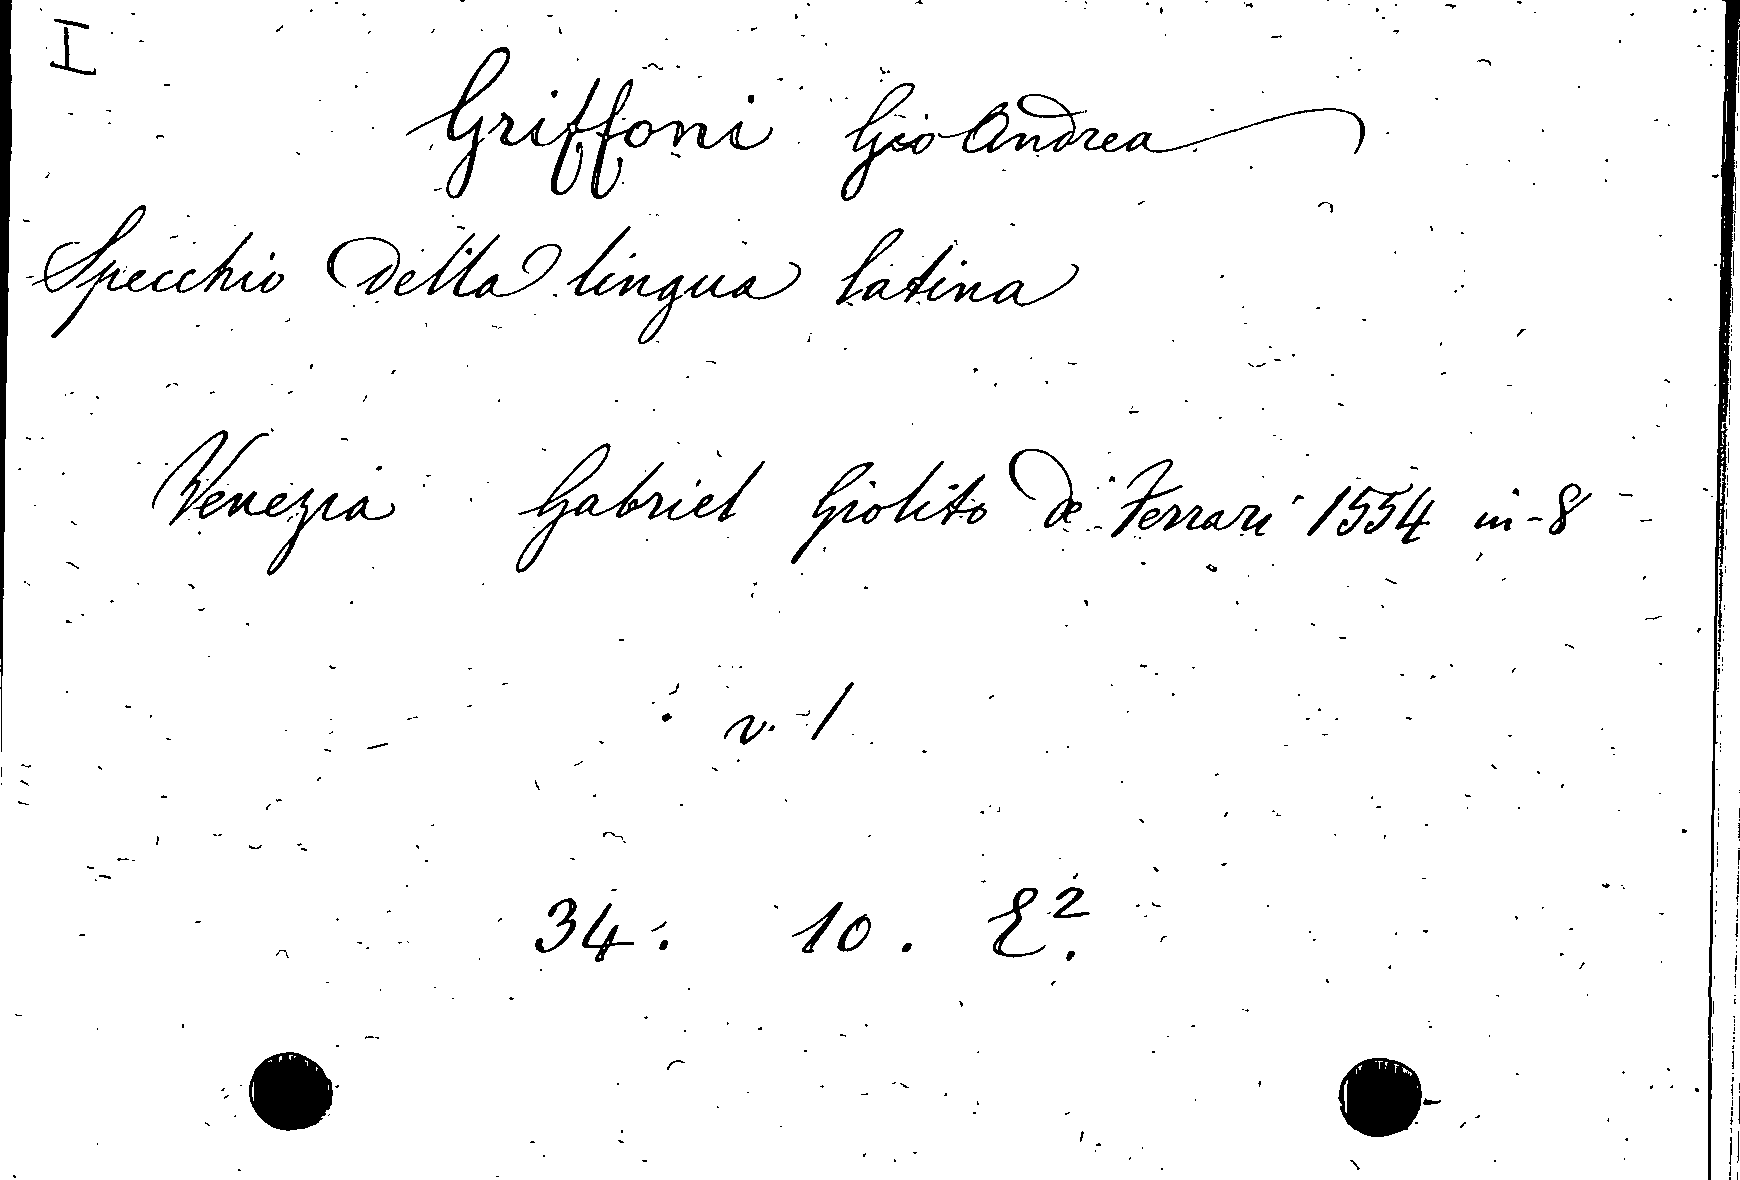 I
Griffoni Gio Andrea
Specchio della lingua latina
Venezia Gabriel Giolito de' Ferrari 1554 in-8
v. 1
34. 10. E².